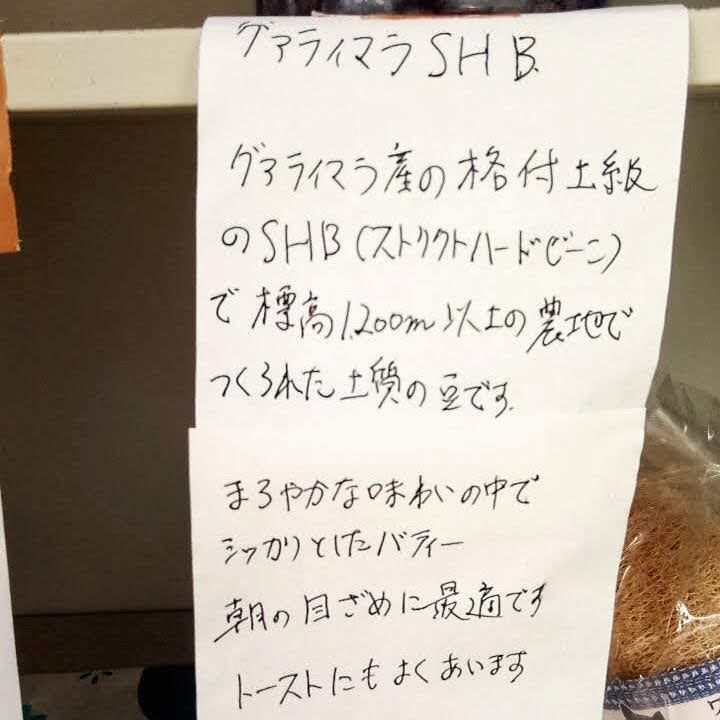 グァライマラSHB.
グァライマラ産の格付上級
のSHB(ストリクトハードビーン)
で標高1,200m以上の農地で
つくられた上質の豆です.
まろやかな味わいの中で
シッカリとしたバディー
朝の目ざめに最適です
トーストにもよくあいます